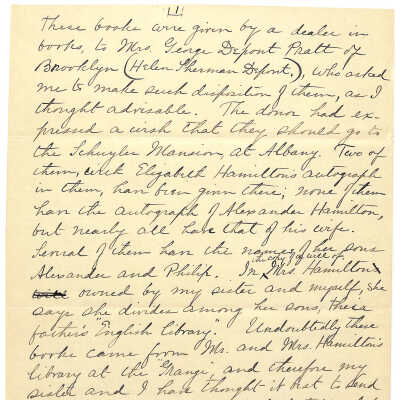 [1]
These books were given by a dealer in
books, to Mrs. George Depont Pratt of
Brooklyn (Helen Sherman Depont,), who asked
me to make such disposition of them, as I
thought advisable. The donor had ex-
pressed a wish that they should go to
the Schuyler Mansion, at Albany. Two of
them, with Elizabeth Hamilton's autograph
in them, have been given there; none of them
have the autograph of Alexander Hamilton,
but nearly all have that of his wife.
Several of them have the names of her sons
Alexander and Philip. In the copy of will of Mrs. Hamilton
owned by my sister and myself, she
says she divides among her sons, their
father's "English Library." Undoubtedly these
books came from Mr. and Mrs. Hamilton's
library at the Grange, and therefore my
sister and I have thought it best to send